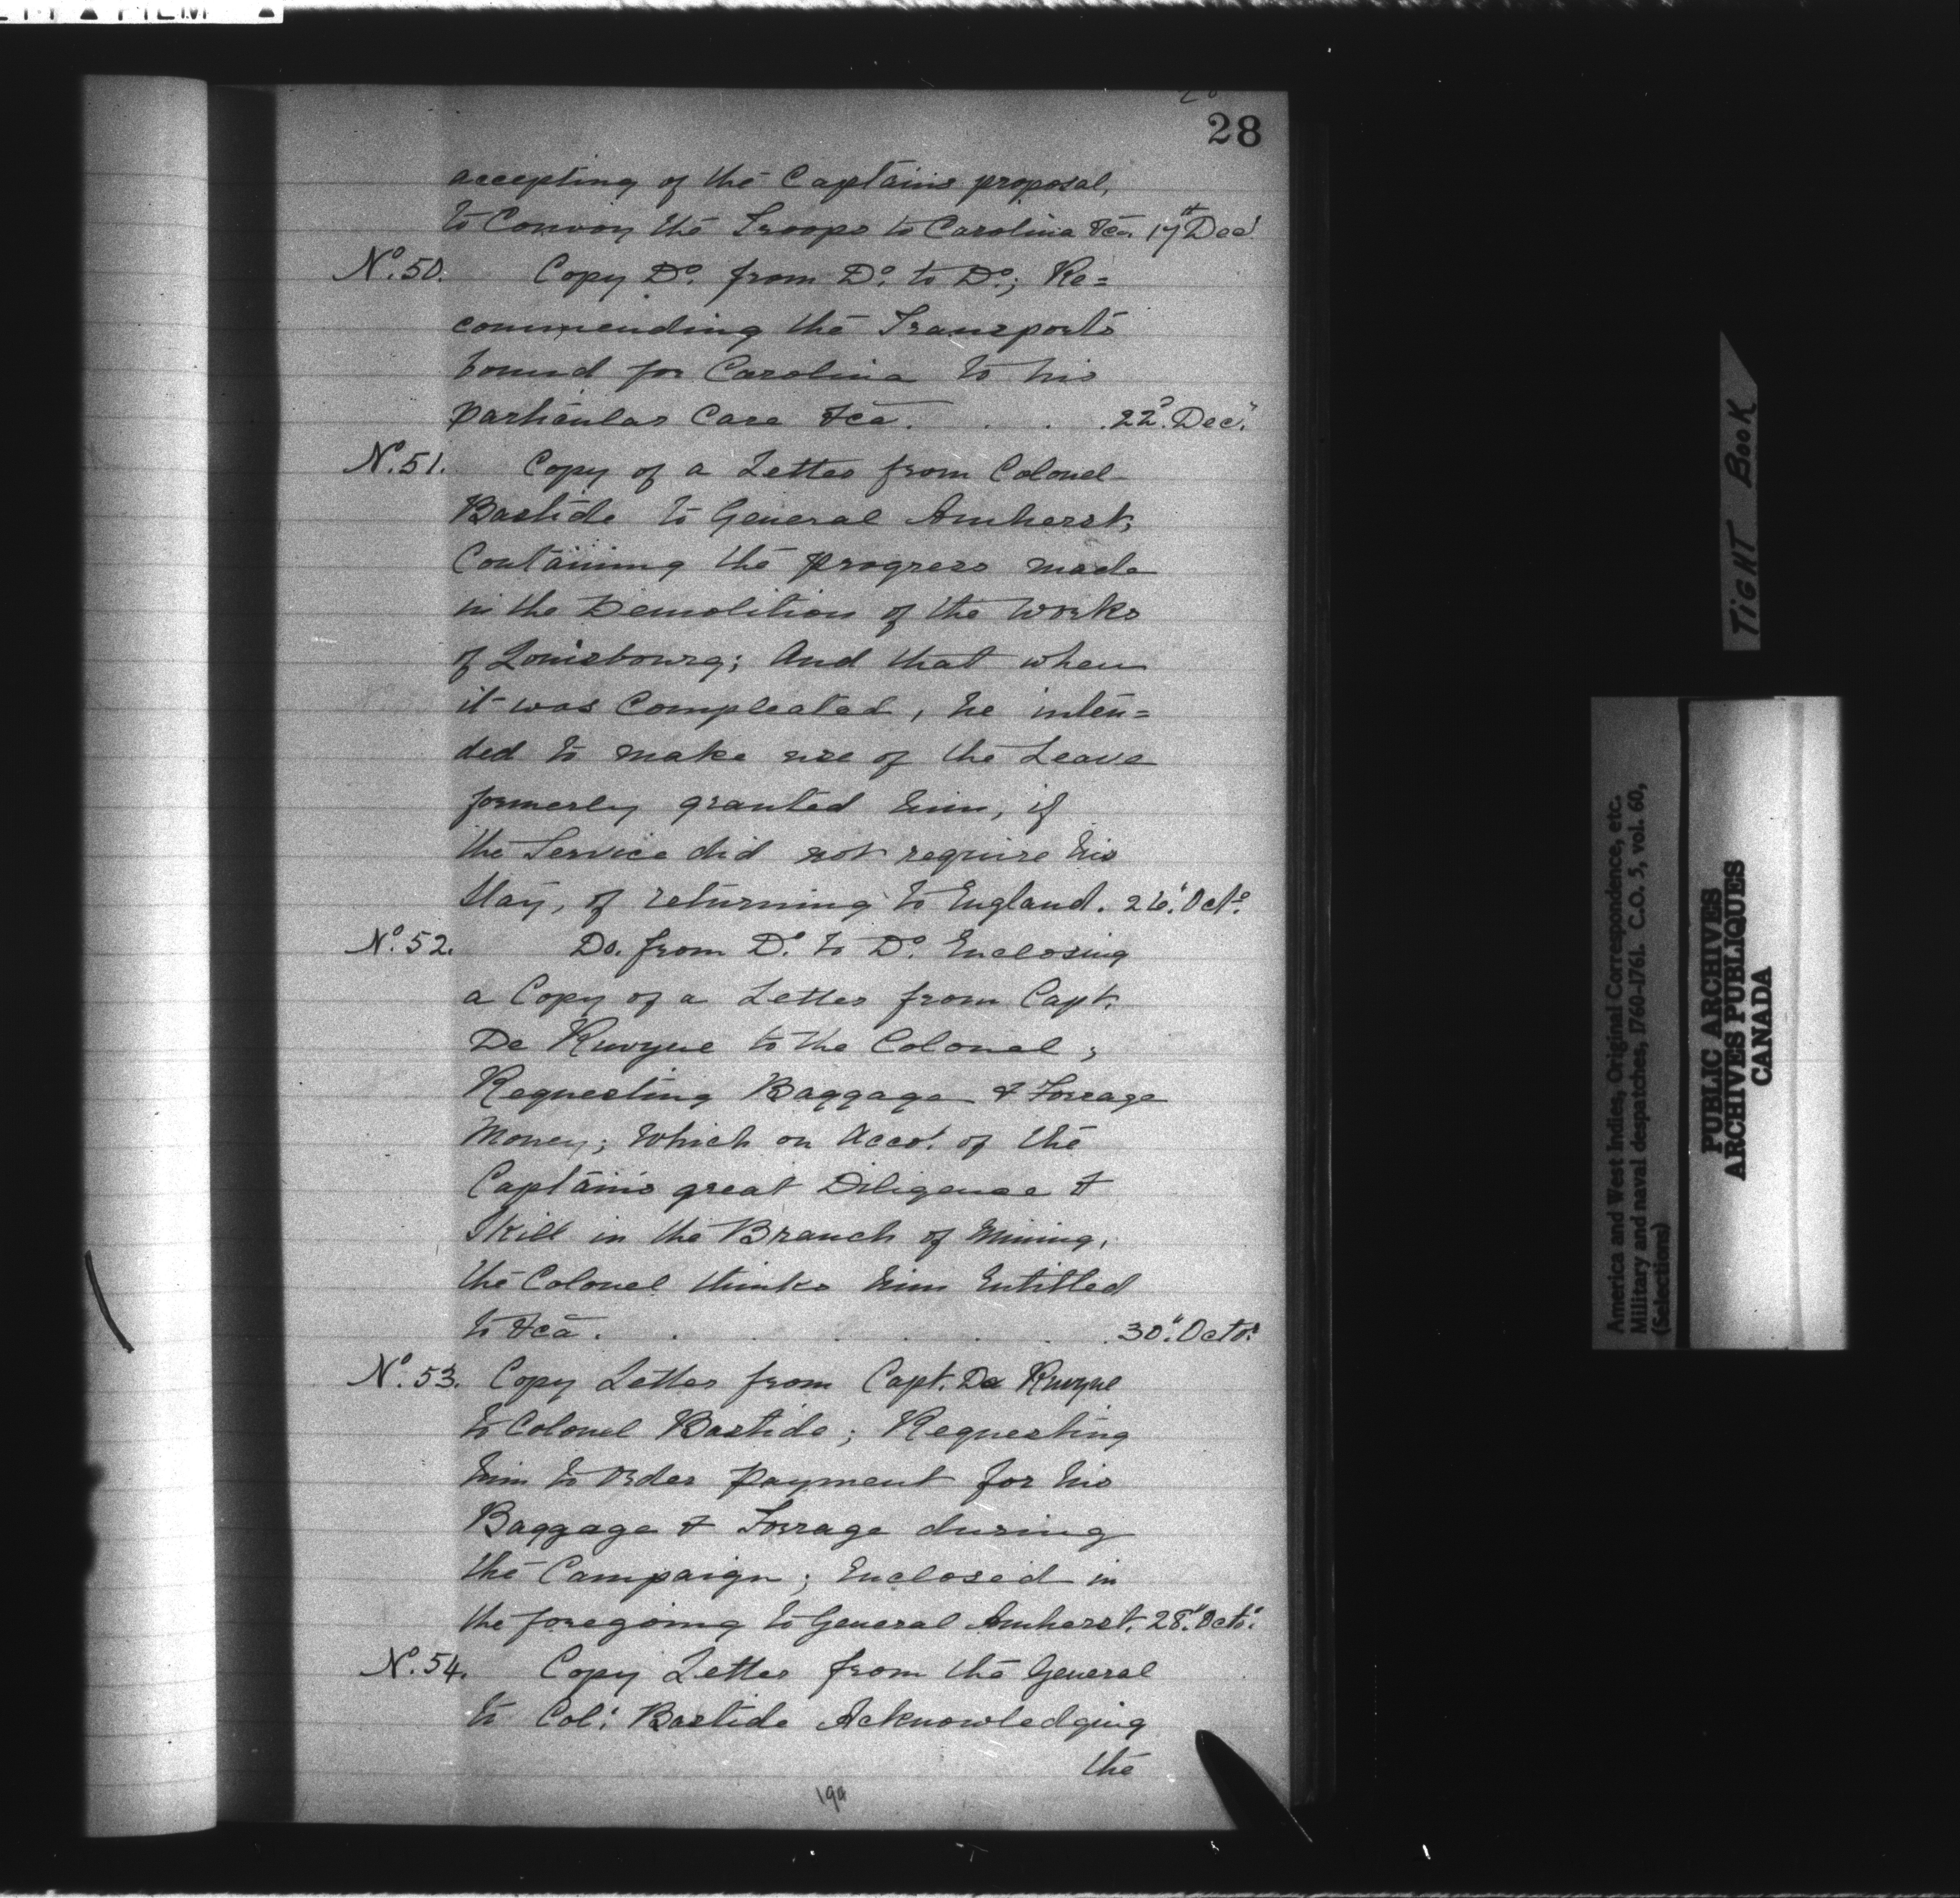 28
accepting of the Captains proposal,
to Convoy the Troops to Carolina &ca 17th Decr
No. 50. Copy Do. from Do. to Do.; Re=
commending the Transports
bound for Carolina to his
particular Care &ca. . . . 22d. Decr.
No. 51. Copy of a Letter from Colonel
Bastide to General Amherst;
Containing the progress made
in the Demolition of the Works
of Louisbourg; And that when
it was Compleated, he inten=
ded to make use of the Leave
formerly granted him, if
the Service did not require his
Stay, of returning to England. 26. Octo.
No. 52. Do. from Do. to Do. Enclosing
a Copy of a Letter from Capt.
De Ruvyne to the Colonel;
Requesting Baggage & Forrage
Money; Which on Accot. of the
Captains great Diligence &
Skill in the Branch of Mining,
the Colonel thinks him Entitled
to &ca . . . . . . . 30. Octo.
No. 53. Copy Letter from Capt. De Ruvyne
to Colonel Bastide; Requesting
him to Order Payment for his
Baggage & Forrage during
the Campaign; Enclosed in
the foregoing to General Amherst. 28. Octo.
No. 54. Copy Letter from the General
to Col. Bastide Acknowledging
the
TIGHT BOOK
America and West Indies, Original Correspondence, etc.
Military and naval despatches, 1760-1761. C.O. 5, vol. 60,
(Selections)
PUBLIC ARCHIVES
ARCHIVES PUBLIQUES
CANADA